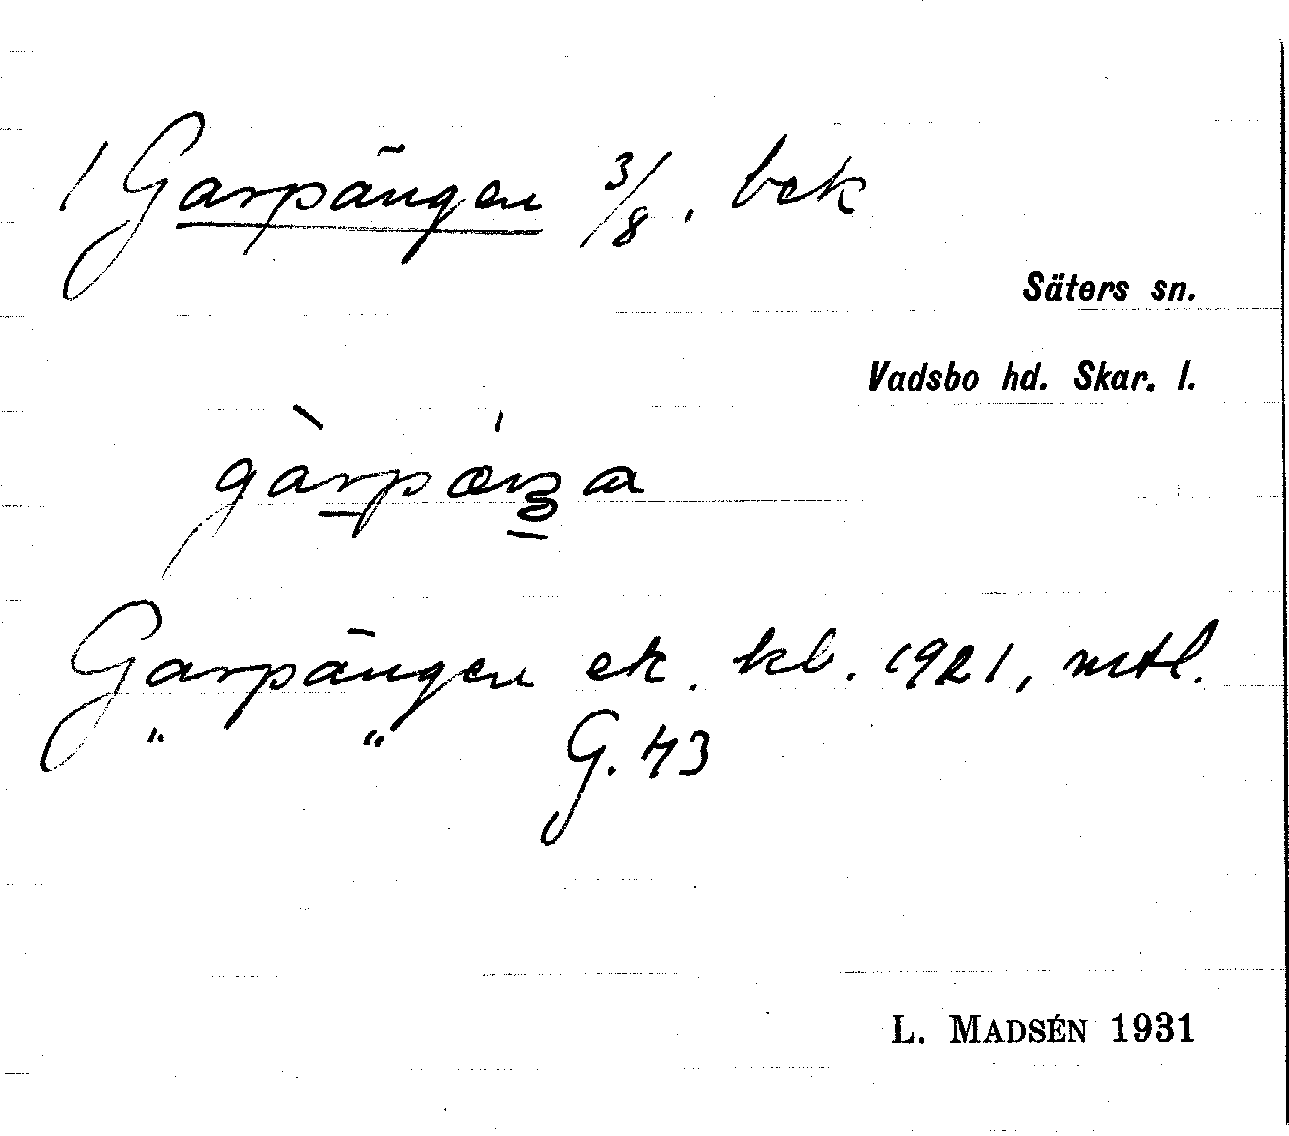 1 Garpängen 3/8. bek
Säters sn.
Vadsbo hd. Skar. l.
Garpängen ek. kl. 1921, mtl.
" " G. 43
L. MADSÉN 1931